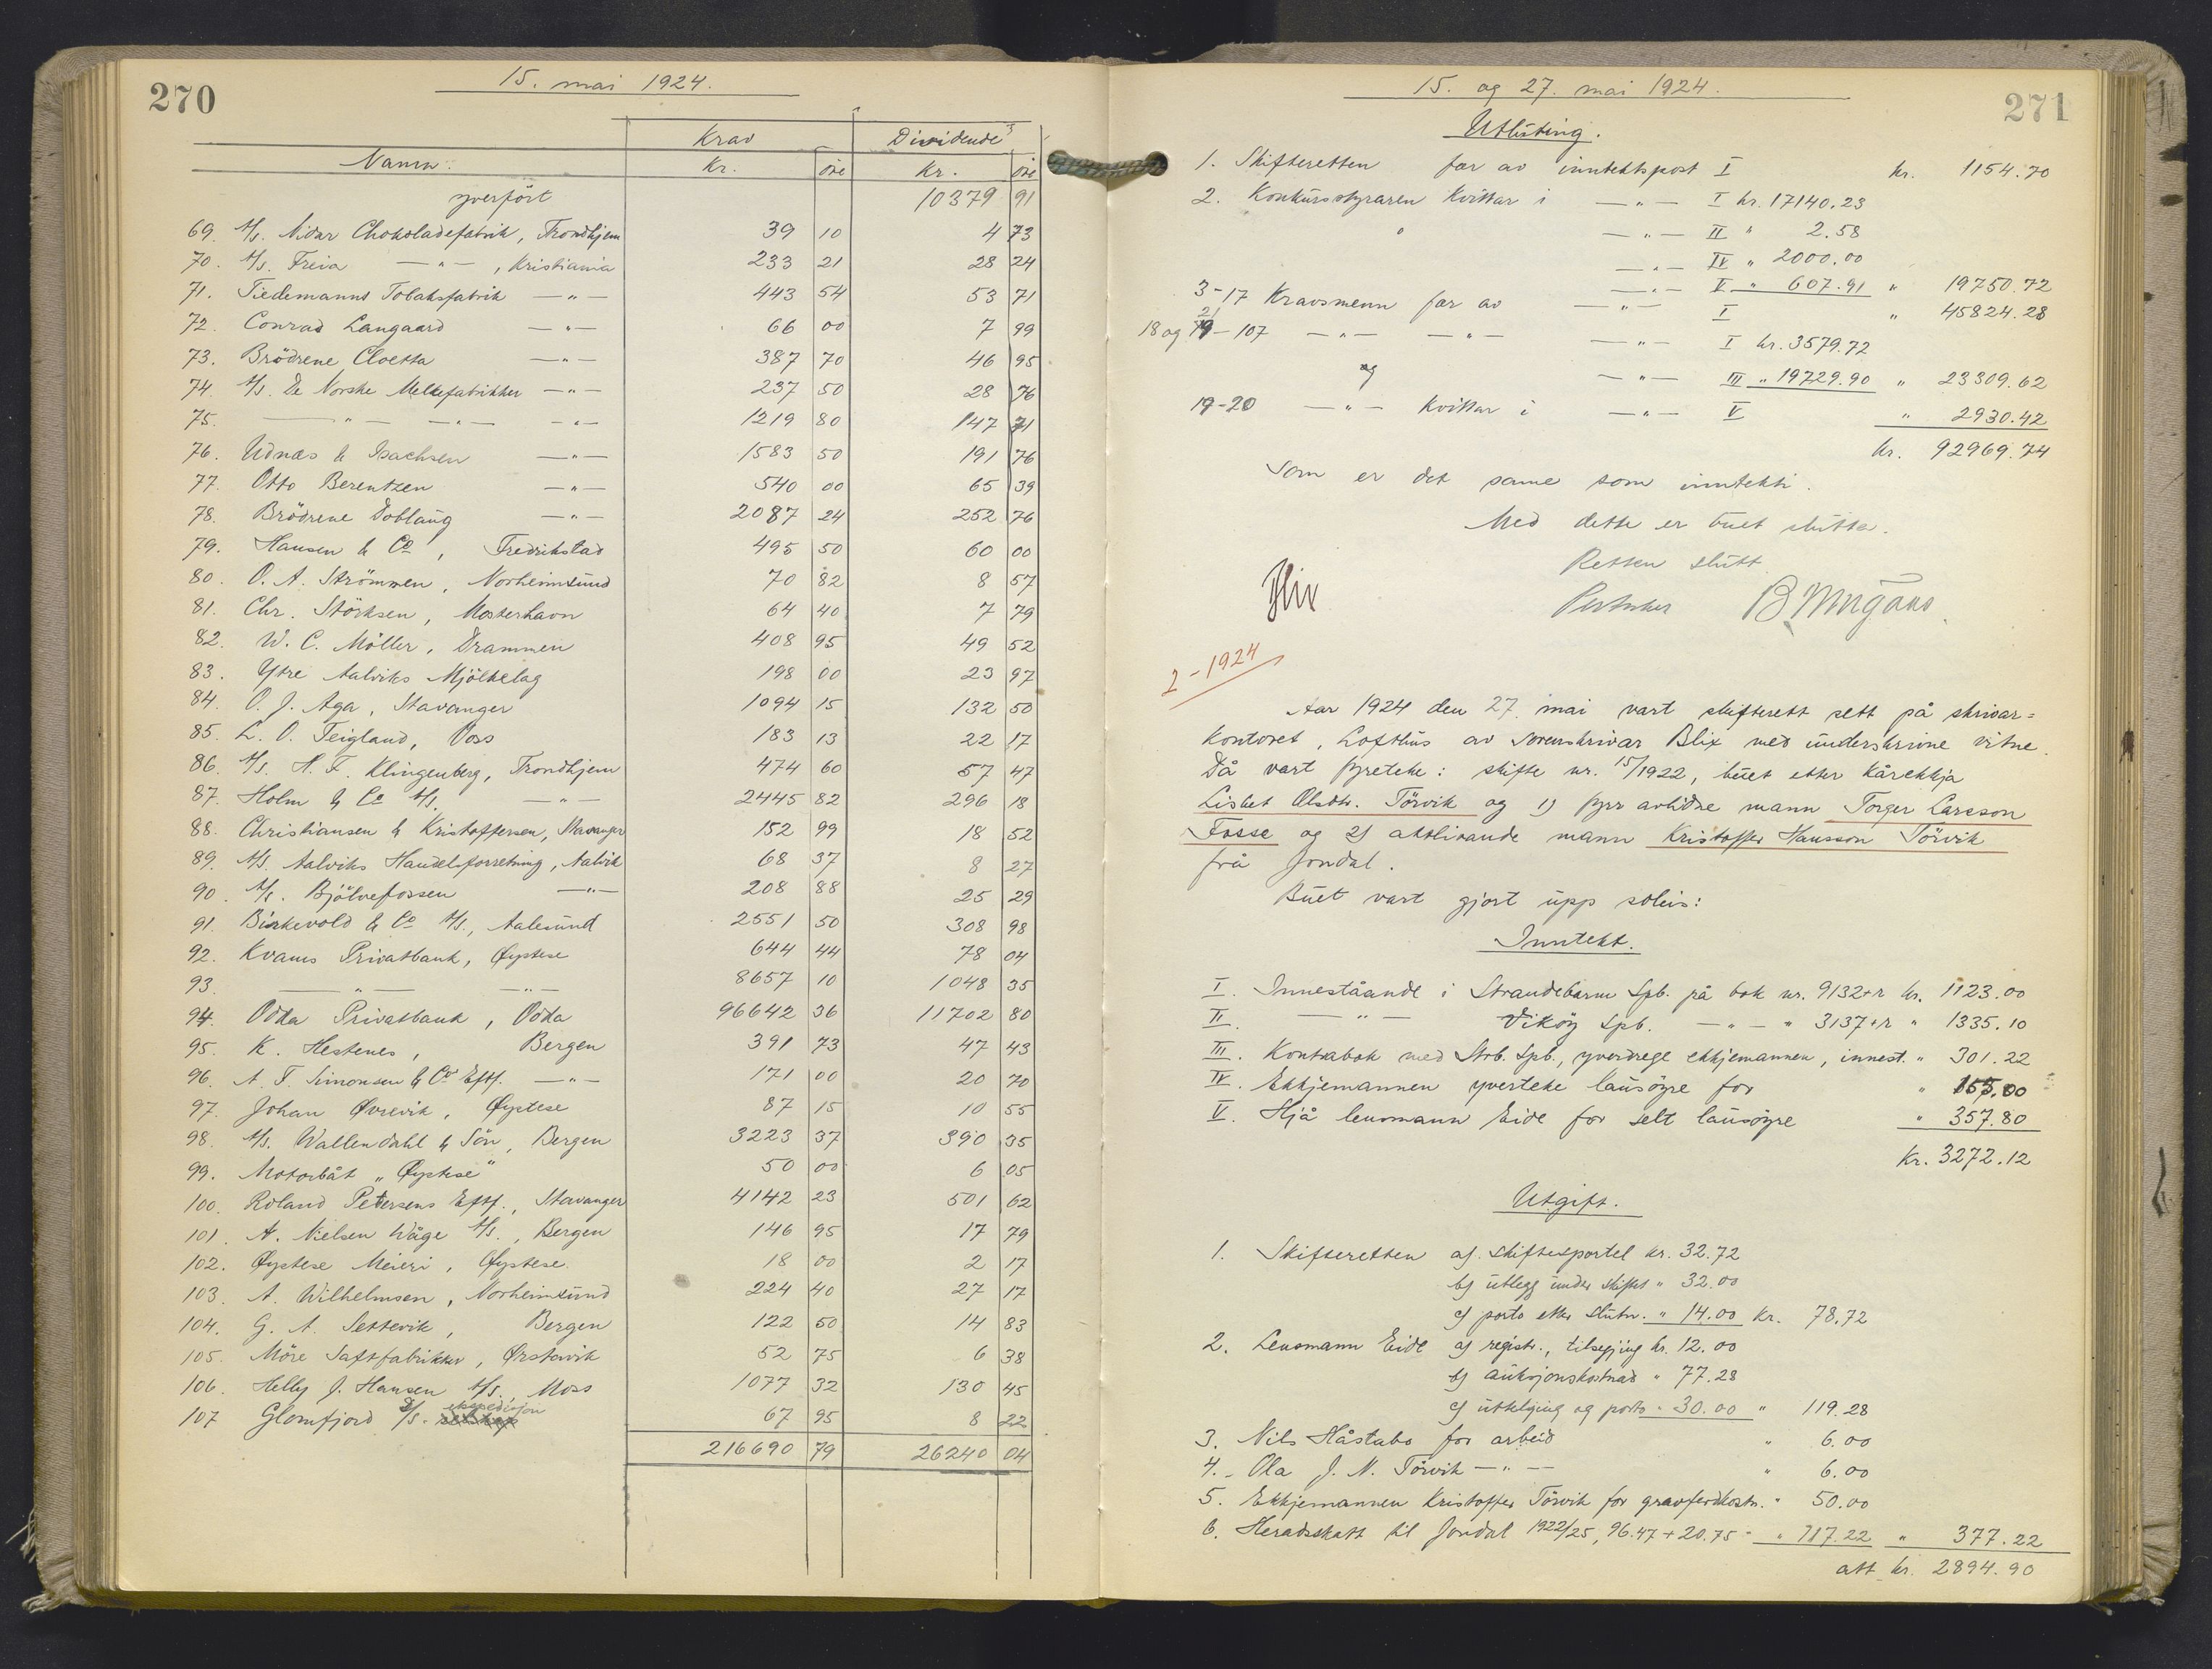 270
15. mai 1924.
Namn. Krav Kr. öre Dividende Kr. öre
yverfört 10379 91
69. A/s. Nidar Chokoladefabrik, Trondhjem 39 10 4 73
70. A/s. Freia —"— , Kristiania 233 21 28 24
71. Tiedemanns Tobaksfabrik —"— 443 54 53 71
72. Conrad Langaard —"— 66 00 7 99
73. Brödrene Cloetta —"— 387 70 46 95
74. A/s. De Norske Melkefabrikker —"— 237 50 28 76
75. —"— —"— —"— 1219 80 147 71
76. Udnæs & Isachsen —"— 1583 50 191 76
77. Otto Berentzen —"— 540 00 65 39
78. Brödrene Dobloug —"— 2087 24 252 76
79. Hansen & Co, Fredrikstad 495 50 60 00
80. O. A. Strömmen, Norheimsund 70 82 8 57
81. Chr. Störksen, Mosterhavn 64 40 7 79
82. W. C. Möller, Drammen 408 95 49 52
83. Ytre Aalviks Mjölkelag 198 00 23 97
84. O. J. Aga, Stavanger 1094 15 132 50
85. L. O. Teigland, Voss 183 13 22 17
86. A/s. H. F. Klingenberg, Trondhjem 474 60 57 47
87. Holm & Co A/s. —"— 2445 82 296 18
88. Christiansen & Kristoffersen, Stavanger 152 99 18 52
89. A/s. Aalviks Handelsforretning, Aalvik 68 37 8 27
90. A/s. Bjölvefossen —"— 208 88 25 29
91. Birkevold & Co A/s., Aalesund 2551 50 308 98
92. Kvams Privatbank, Øystese 644 44 78 04
93. —"— —"— 8657 10 1048 35
94. Odda Privatbank, Odda 96642 36 11702 80
95. K. Hestenes, Bergen 391 73 47 43
96. A. F. Simonsen & Co's Eftf. —"— 171 00 20 70
97. Johan Øvrevik, Øystese 87 15 10 55
98. A/s. Wallendahl & Sön, Bergen 3223 37 390 35
99. Motorbåt „Øystese" 50 00 6 05
100. Roland Petersens Eftf., Stavanger 4142 23 501 62
101. A. Nielsen Wåge A/s., Bergen 146 95 17 79
102. Øystese Meieri, Øystese. 18 00 2 17
103. A. Wilhelmsen, Norheimsund 224 40 27 17
104. G. A. Settevik, Bergen 122 50 14 83
105. Möre Saftfabrikker, Ørstavik 52 75 6 38
106. Helly J. Hansen A/s., Moss 1077 32 130 45
107 Glomfjord D/s. ekspedisjon 67 95 8 22
216690 79 26240 04
271
15. og 27. mai 1924.
Utluting.
1. Skifteretten fær av inntektspost I kr. 1154.70
2. Konkursstyraren kvittar i —"— I kr. 17140.23
" —"— II " 2.58
—"— IV " 2000.00
—"— V " 607.91 " 19750.72
3-17 Kravsmenn fær av —"— I " 45824.28
18 og 21-107 —"— —"— —"— I kr. 3579.72
og —"— III " 19729.90 " 23309.62
19-20 —"— kvittar i —"— V " 2930.42
kr. 92969.74
Som er det same som inntekti.
Med dette er buet slutta.
Retten slutt.
Blix
2-1924
Aar 1924 den 27. mai vart skifterett sett på skrivar=
kontoret, Lofthus av sorenskrivar Blix med underskrivne vitne.
Då vart fyreteke: skifte nr. 15/1922, buet etter kårekkja
Lisbet Olsdtr. Törvik og 1) fyrr avlidne mann Torger Larsson
Fosse og 2) attlivande mann Kristoffer Hansson Törvik
frå Jondal.
Buet vart gjort upp soleis:
Inntekt.
I. Inneståande i Strandebarm Spb. på bok nr. 9132+r kr. 1123.00
II. —"— Vikøy Spb. —"— " 3137+r " 1335.10
III. Kontrabok med Strb. Spb., yverdrege ekkjemannen, innest. " 301.22
IV. Ekkjemannen yverteke lausöyre for " 155.00
V. Hjå lensmann Eide for selt lausöyre " 357.80
Kr. 3272.12
Utgift.
1. Skifteretten a) skiftesportel kr. 32.72
b) utlegg under skiftet " 32.00
c) porto etter slutn. " 14.00 Kr. 78.72
2. Lensmann Eide a) registr., tilsegjing kr. 12.00
b) auksjonskostnad " 77.28
c) utkljing og porto " 30.00 " 119.28
3. Nils Håstabø for arbeid " 6.00
4. Ola J. N. Törvik —"— " 6.00
5. Ekkjemannen Kristoffer Törvik for gravferdkostn. " 50.00
6. Heradsskatt til Jondal 1922/25, 96.47 + 20.75 = " 117.22 " 377.22
att kr. 2894.90